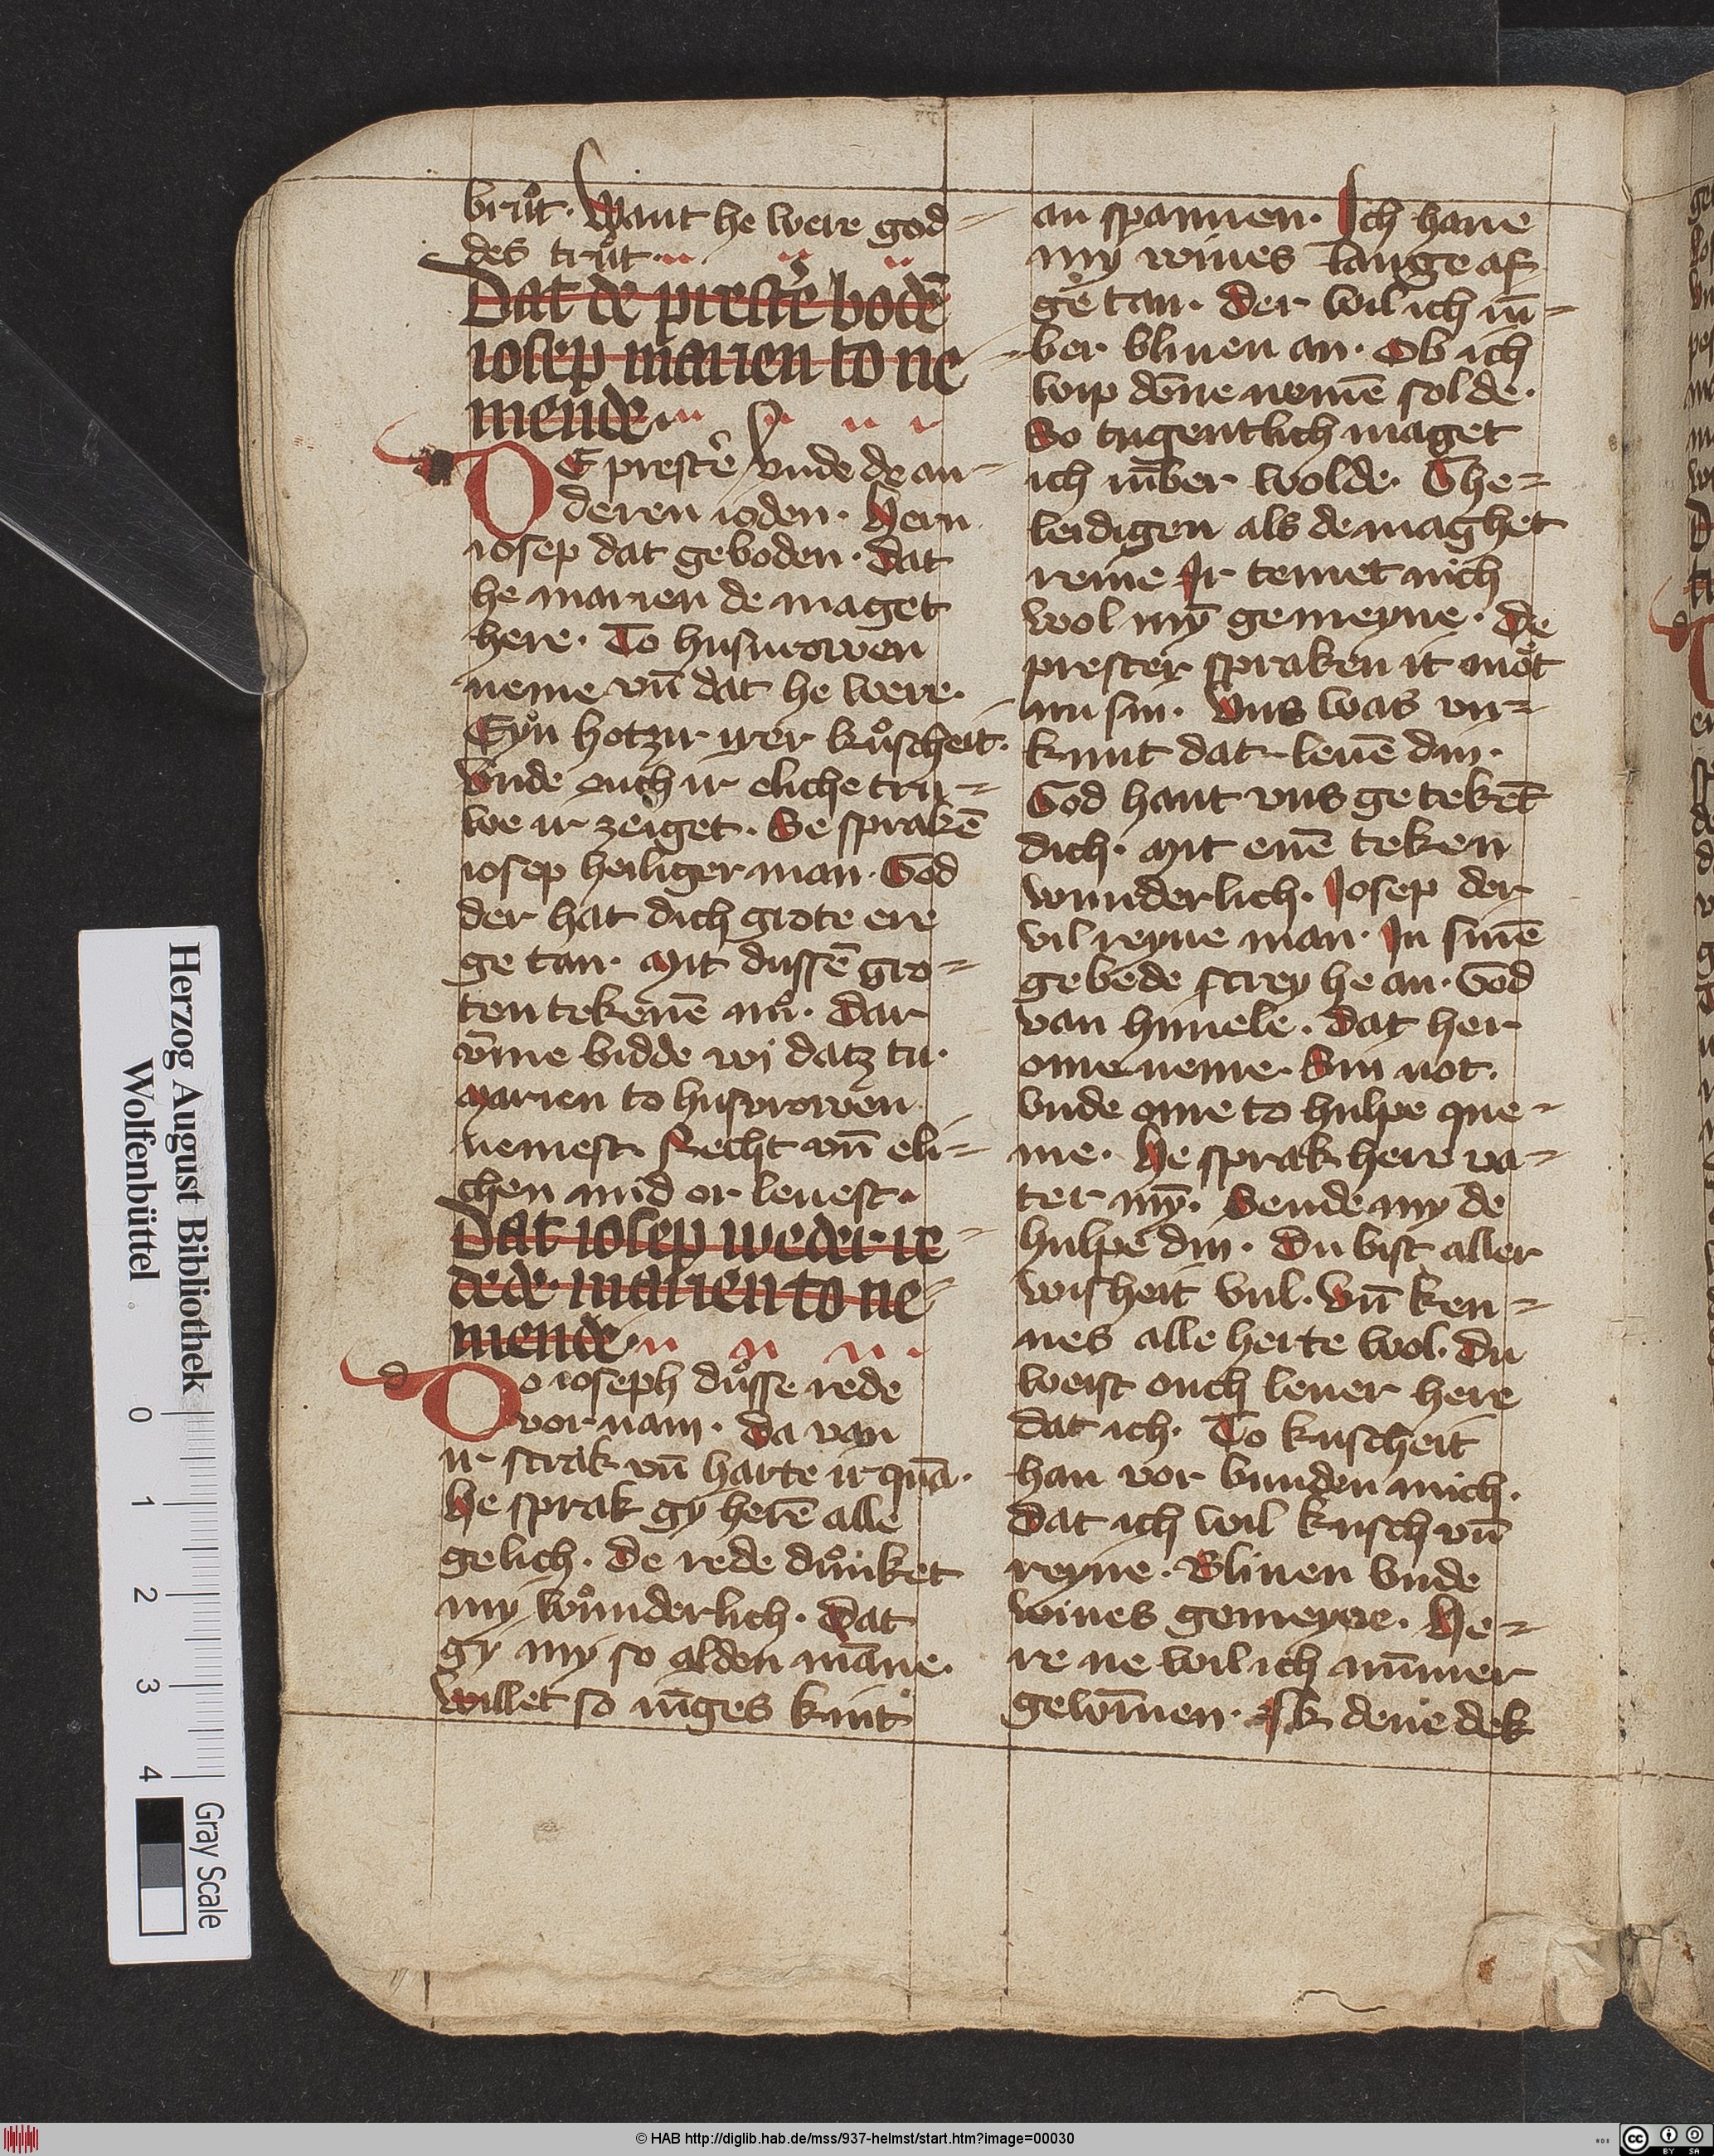 brůt. Want he were god=
des trůt.
Dat de prestˀe bodē
iosep marien to ne=
mende.
DE prestˀe vnde de an=
deren ioden. Hern
iosep dat geboden. Dat
he marien de maget
here. To husurowen
neme vn̄ dat he were.
Eyn hotzir irer kůscheit.
Vnde ouch ir eliche tru=
we ir zeiget. Se sprakē
iosep heiliger man. God
der hat dich grote ere
ge tan. Mit dussē gro=
ten tekenē nů. Dar
v̄me bidde wi datz tu.
Marien to husvrowen
nemest. Recht vn̄ eli=
chen mid or leuest.
Dat iosep weder re=
dede marien to ne=
mende.
Do ioseph důsse rede
vor nam. Da van
ir scrak vn̄ harte ir quā.
He sprak gy herē alle
gelich. De rede důnket
my wůnderlich. Dat
gy my so alden māne.
Willet so iūges kint
an spannen. Ich haue
my wiues lange af
ge tan. Der wil ich iū=
ber bliuen an. Ob ich
wip dēne nemē solde.
So tugentlich maget
ich iūber wolde. The=
leidigen als de maghet
reine Ir temet nich
wol mȳ gemeyne. De
prester spraken it mo̊t
nu sin. Vns was vn=
kunt dat leuē din.
God haut vns ge tekēt
dich. Mit enē teken
wunderlich. Iosep der
vil reyne man. In sinē
gebede screy he an. God
van himele. Dat her
ome neme. Sin not.
Vnde ome to hulpe que=
me. He sprak here va=
ter mȳ. Sende my de
hulpe din. Du bist aller
wisheit vul. Vn̄ ken=
nes alle herte wol. Du
weist ouch leuer here
dat ich. To kuscheit
han vor bunden mich.
Dat ich wil kusch vn̄
reyne. Bliuen vnde
wiues gemeyne. He=
re ne wil ich nūmer
gewīnen. Ik dene dek
Herzog August Bibliothek
Wolfenbüttel
0 1 2 3 4
Gray Scale
© HAB http://diglib.hab.de/mss/937-helmst/start.htm?image=00030